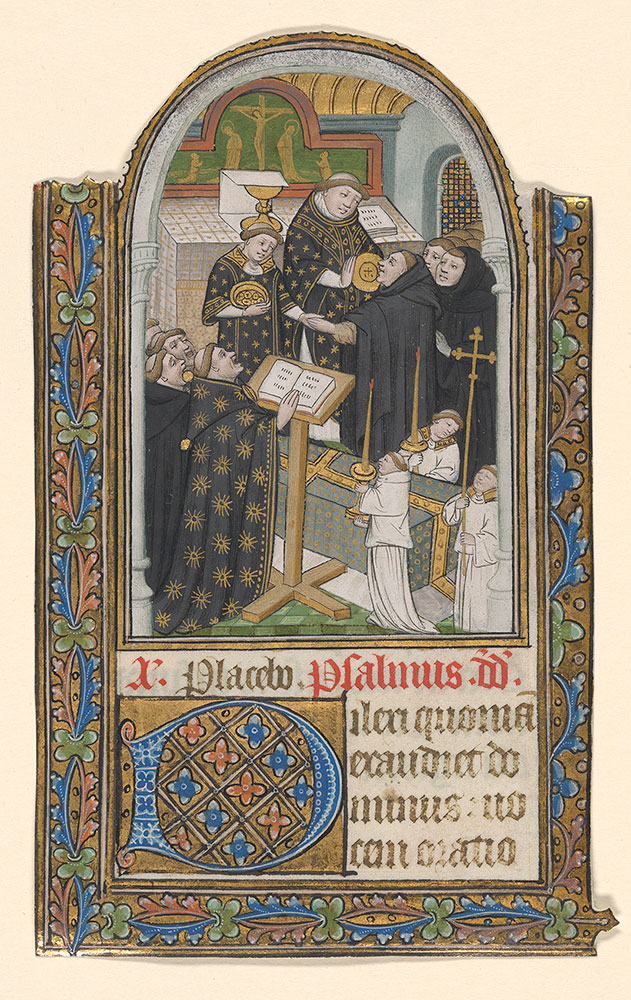 X. Placebo. Psalmus. dd.
Dilexi quoniā
exaudiet do
minus: uo
cem oratio